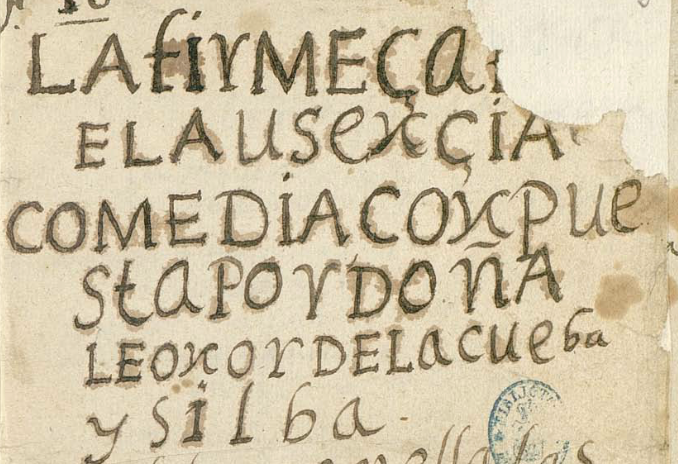 LA firMEÇA
ELAUSENÇIA
COMEDIA CONPUE
STA POR DOÑA
LEONOR DE LA CUEba
y Silba